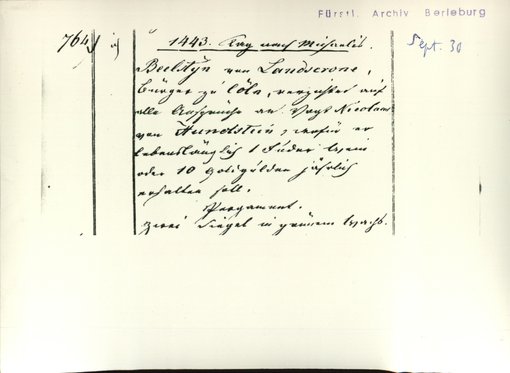 Fürstl. Archiv Berleburg
Sept. 30
764
1443. Tag nach Michaelis.
von Landscrone,
Bürger zu Cöln, verzichtet auf
alle Ansprüche an Vogt Nicolaus
von Hundstein, wofür er
lebenslänglich 1 Fuder Wein
oder 10 Goldgülden jährlich
erhalten soll.
Pergament.
zwei Siegel in grünem Wachs.